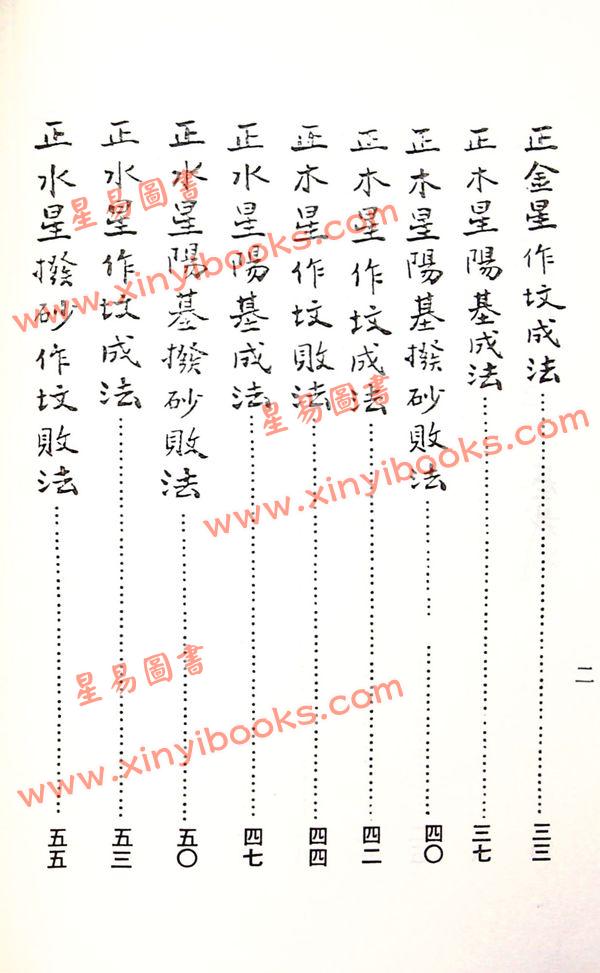 正金星作坟成法⋯⋯三三
正木星陽基成法⋯⋯三七
正木星陽基撥砂敗法⋯⋯四〇
正木星作坟成法⋯⋯四二
正木星作坟敗法⋯⋯四四
正水星陽基成法⋯⋯四七
正水星陽基撥砂敗法⋯⋯五〇
正水星作坟成法⋯⋯五三
正水星撥砂作坟敗法⋯⋯五五
二
星易圖書
www.xinyibooks.com
星易圖書
www.xinyibooks.com
星易圖書
www.xinyibooks.com